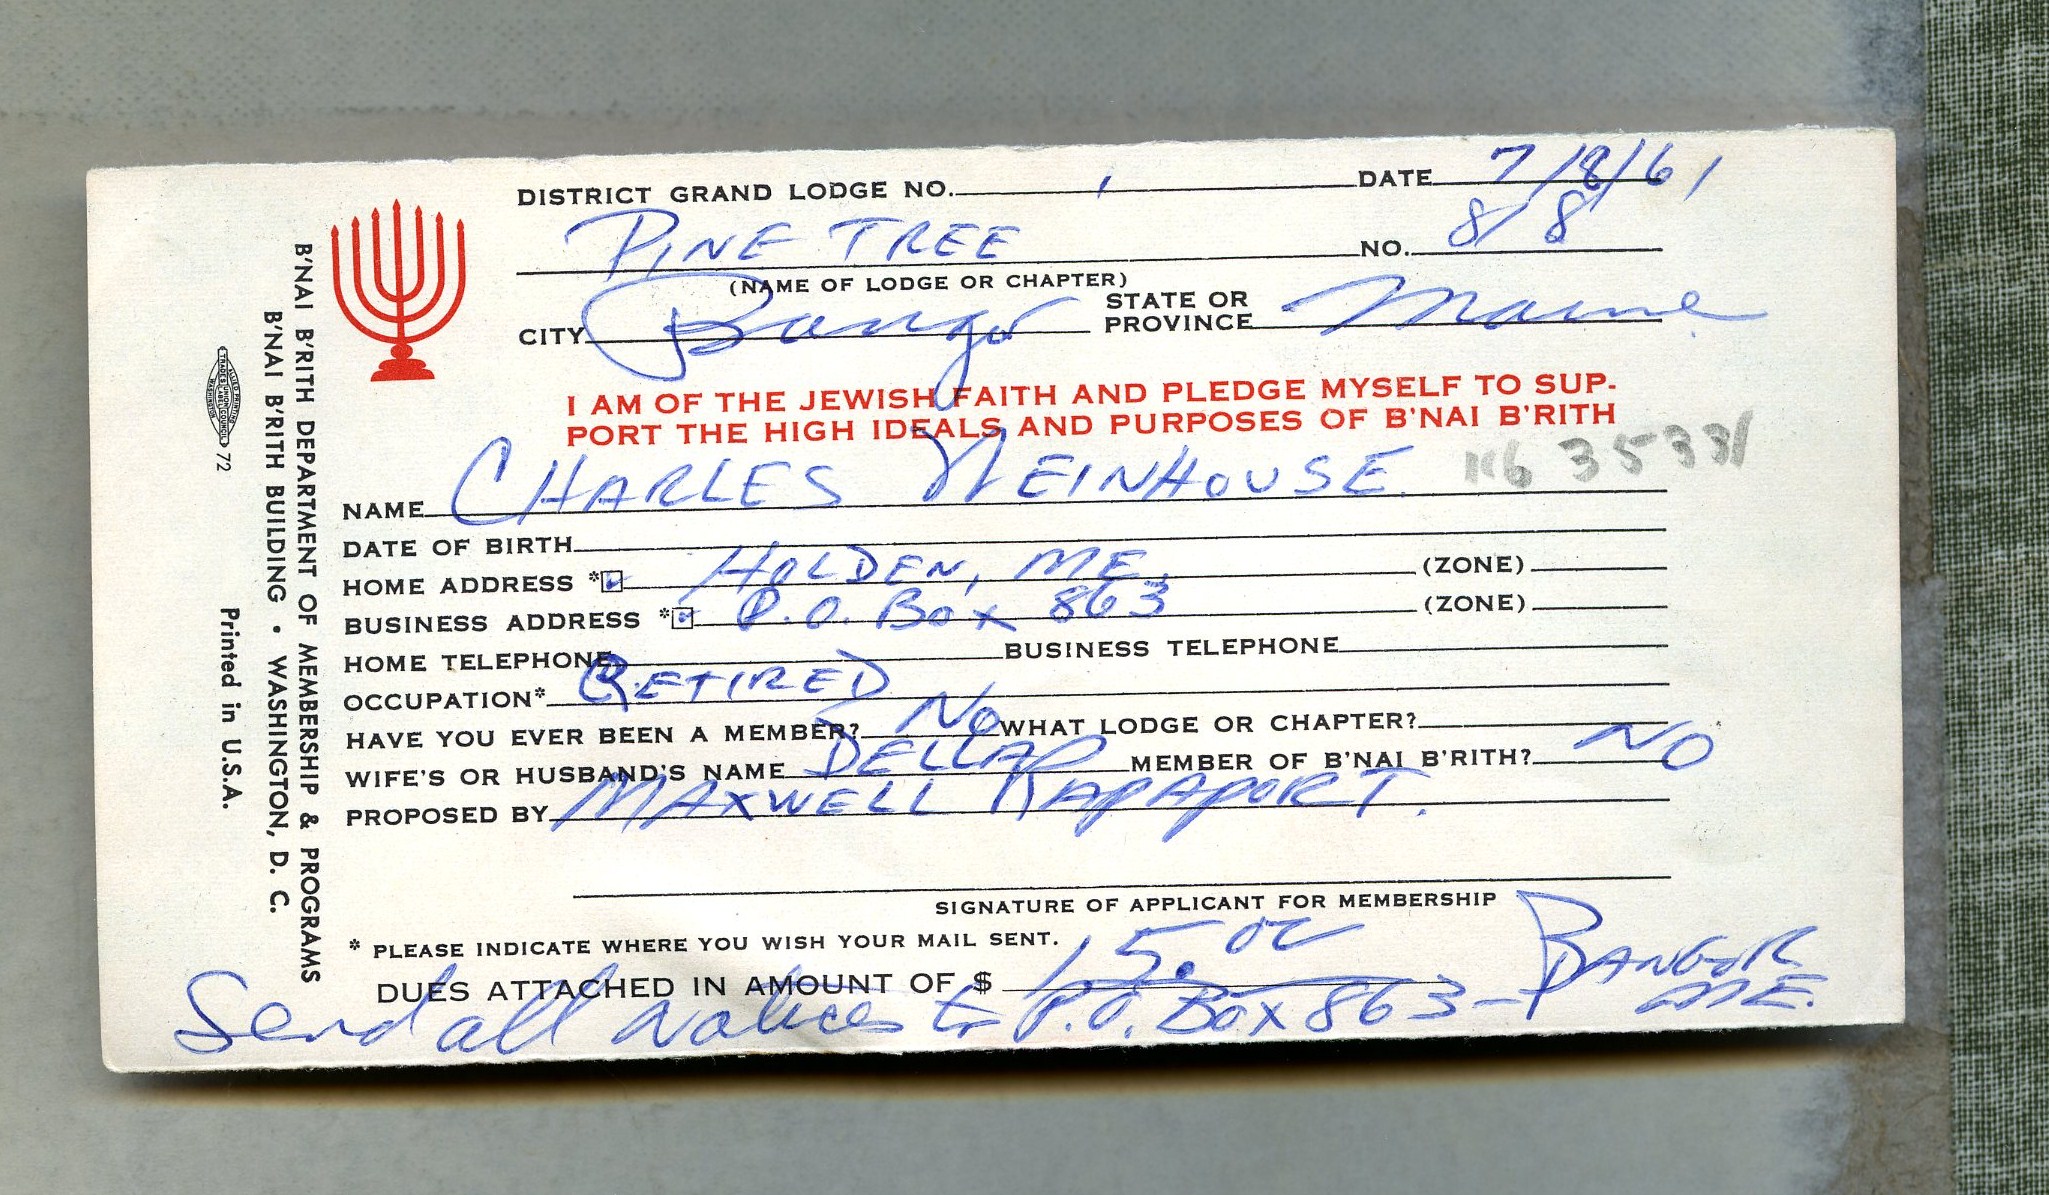 DISTRICT GRAND LODGE NO. 1 DATE 7/8/61
PINE TREE NO. 818
(NAME OF LODGE OR CHAPTER)
CITY Bangor STATE OR PROVINCE Maine
I AM OF THE JEWISH FAITH AND PLEDGE MYSELF TO SUP-
PORT THE HIGH IDEALS AND PURPOSES OF B'NAI B'RITH
NAME CHARLES WEINHOUSE 3533
DATE OF BIRTH
HOME ADDRESS * HOLDEN, ME. (ZONE)
BUSINESS ADDRESS * P.O. BOX 863 (ZONE)
HOME TELEPHONE BUSINESS TELEPHONE
OCCUPATION* RETIRED
HAVE YOU EVER BEEN A MEMBER? NO WHAT LODGE OR CHAPTER?
WIFE'S OR HUSBAND'S NAME MEMBER OF B'NAI B'RITH? NO
PROPOSED BY MAXWELL RAPAPORT.
SIGNATURE OF APPLICANT FOR MEMBERSHIP
* PLEASE INDICATE WHERE YOU WISH YOUR MAIL SENT.
DUES ATTACHED IN AMOUNT OF $ 15.00
Send all notices to P.O. Box 863 - BANGOR ME.
B'NAI B'RITH DEPARTMENT OF MEMBERSHIP & PROGRAMS
B'NAI B'RITH BUILDING • WASHINGTON, D. C.
ALLIED PRINTING TRADES UNION LABEL COUNCIL WASHINGTON 72
Printed in U.S.A.